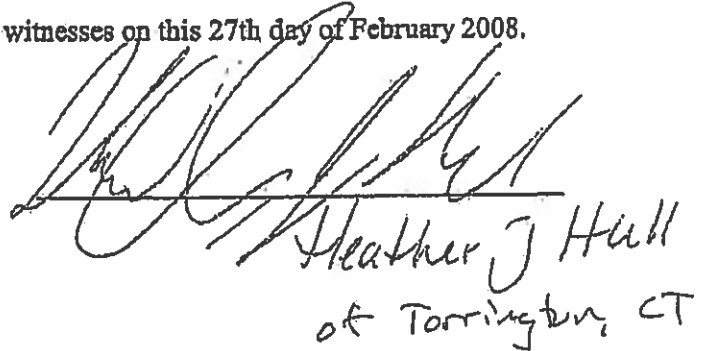 witnesses on this 27th day of February 2008.
Heather J Hull
of Torrington, CT